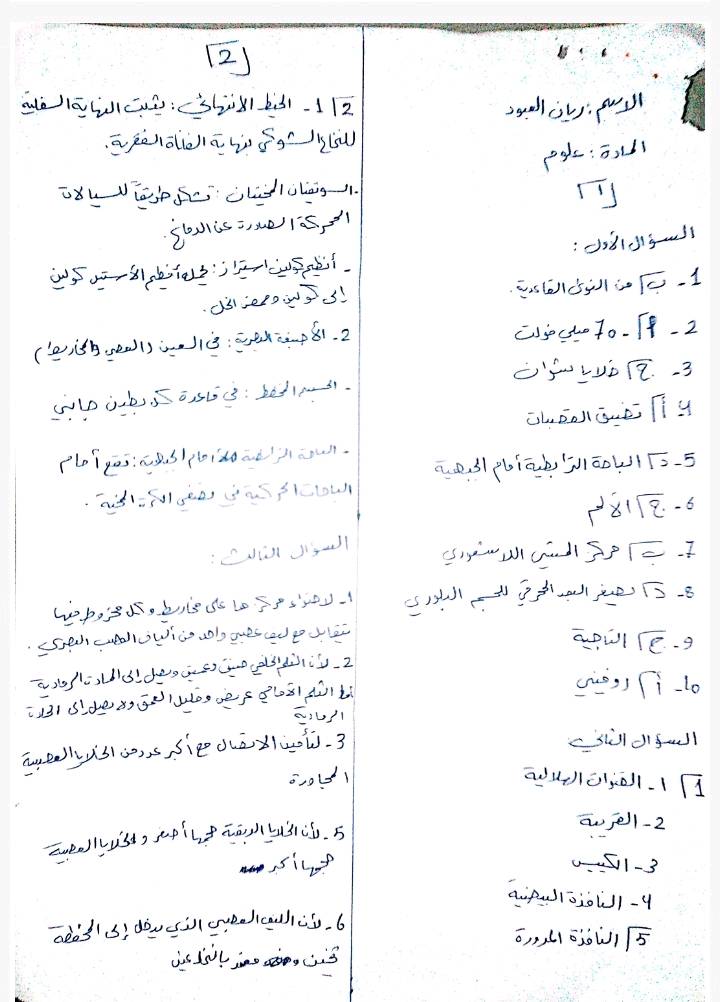 الاسم: ريان العبود
المادة: علوم
1
السؤال الأول:
1- ب من النوى القاعدية.
2- أ -70 ميلي فولت
3- ج خلايا شوان
4- أ تضيق القصبات
5- د الباحة الترابطية أمام الجبهية
6- ج الألم
7- ب مركز المشي اللاشعوري
8- د تصغير البعد المحرقي للجسم البلوري
9- ج التاجية
10- أ روفيني
السؤال الثاني
1 1- القنوات الهلالية
2- القريبة
3- الكييس
4- النافذة البيضية
5 النافذة المدورة
2
2 1- الخيط الانتهائي: يثبت النهاية السفلية
للنخاع الشوكي بنهاية القناة الفقرية.
- السويقتان المخيتان: تشكل طريقاً للسيالات
المحركة الصادرة عن الدماغ.
- أنظيم كولين استيراز: يحلل أنظيم الأستيل كولين
إلى كولين وحمض الخل.
2- الأصبغة البصرية: في العين (العصي والمخاريط)
- الجسم المخطط: في قاعدة كل بطين جانبي
- الباحة الترابطية أمام الجبهية: تقع أمام
الباحات الحركية في نصفي الكرة المخية.
السؤال الثالث:
1- لاحتواء مركزها على مخاريط وكل مخروط فيها
تتقابل مع ليف عصبي واحد من ألياف العصب البصري.
2- لأن الثلم الخلفي ضيق وعميق ويصل إلى المادة الرمادية
الثلم الأمامي عريض وقليل العمق ولا يصل إلى المادة
الرمادية
3- لتأمين الاتصال مع أكبر عدد من الخلايا العصبية
المجاورة
5- لأن الخلايا الدبقية حجمها أصغر والخلايا العصبية
حجمها أكبر
6- لأن الليف العصبي الذي يدخل إلى المحفظة
ثخين و مغمد بالنخاعين